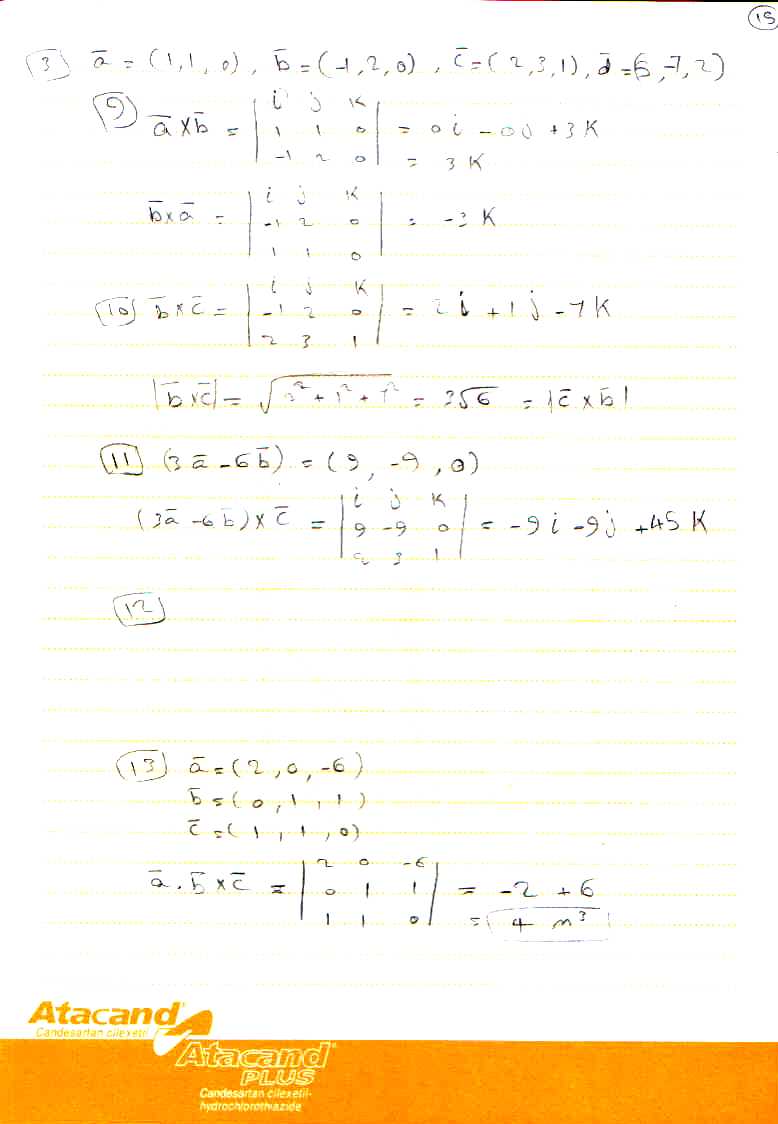 15
3 ā = (1,1,0), b̄ = (-1,2,0), c̄ = (2,3,1), d̄ = (5,-7,2)
9 ā × b̄ = | i j K |
| 1 1 0 | = 0i - 0j + 3K
| -1 2 0 | = 3K
b̄ × ā = | i j K |
| -1 2 0 | = -3K
| 1 1 0 |
10 b̄ × c̄ = | i j K |
| -1 2 0 | = 2i + 1j - 7K
| 2 3 1 |
|b̄ × c̄| = √(2² + 1² + 7²) = 3√6 = |c̄ × b̄|
11 (3ā - 6b̄) = (9, -9, 0)
(3ā - 6b̄) × c̄ = | i j K |
| 9 -9 0 | = -9i - 9j + 45K
| 2 3 1 |
12
13 ā = (2, 0, -6)
b̄ = (0, 1, 1)
c̄ = (1, 1, 0)
ā . b̄ × c̄ = | 2 0 -6 |
| 0 1 1 | = -2 + 6
| 1 1 0 | = 4 m³
Atacand
Candesartan cilexetil
Atacand
PLUS
Candesartan cilexetil-
hydrochlorothiazide